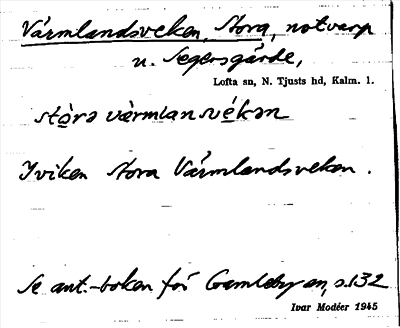 Värmlandsveken, Stora, notvarp
u. Segersgärde,
Lofta sn, N. Tjusts hd, Kalm. l.
stòra värmlansvékən
I viken Stora Värmlandsveken.
Se ant.-boken för Gamleby sn, s. 132
Ivar Modéer 1945